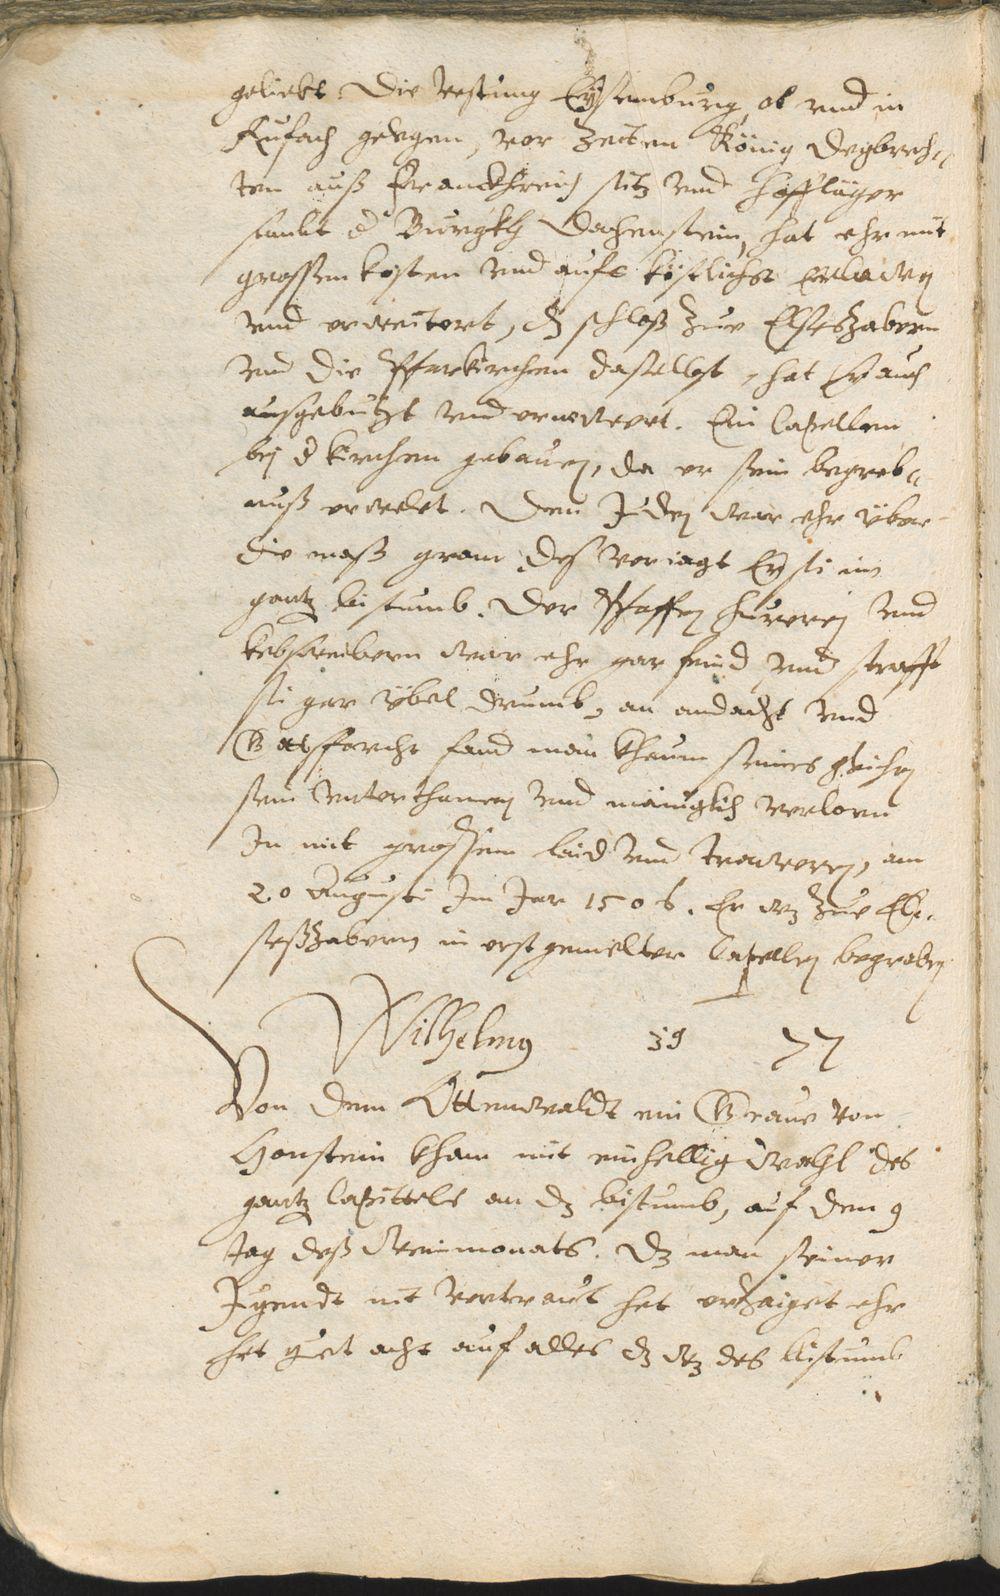 geliebt. Die Vestung Eysenburg, ob vnd in
Rufach gelegen, vor Zeiten König Degbrech„
ten auß Franckhreich sitz vnd Hoffläger
sambt d Burgkh Dachenstein, hat ehr mit
grossem kosten vnd aufs köstlichst
vnd erweitert, dz schloß Zue ElsesZabern
vnd die Pfarkirchen daselbst, hat Er auch
ausgebutzt vnd ernewert. Ein Capellen
bej d kirchen gebauen, da er sein begreb„
nuß erwelet. Den Juden war ehr vber
die maß gram, deß veriagt Er si im
gantz bistumb. Der Pfaffen hurerej vnd
kebsweibern war ehr gar feind vnd strafft
si gar vbel drumb, an andacht vnd
Gottsforcht fand man khaum seines gleichen
sein vnterthanen vnd mäniglich verlorn
In mit grossem laid vnd trawren, am
20 Augusti Im Jar 1506. Er wz Zue El„
sesZabern in erst gemelter Capellen begraben
Wilhelmus 39 77
Von dem Ottenwaldt ein Graue von
Honstein kham mit einhellig wahl des
gantz Capittels an dz bistumb, auf den 9
tag deß Weinmonats. Dz man seiner
Jugendt nit vertraut het erzaiget ehr
het guet acht auf alles dz wz des bistumb